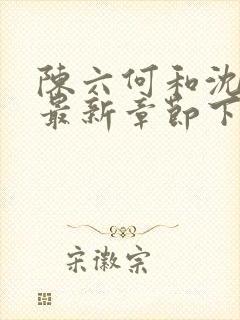 陈六何和沈
最新章节下
宋徽宗